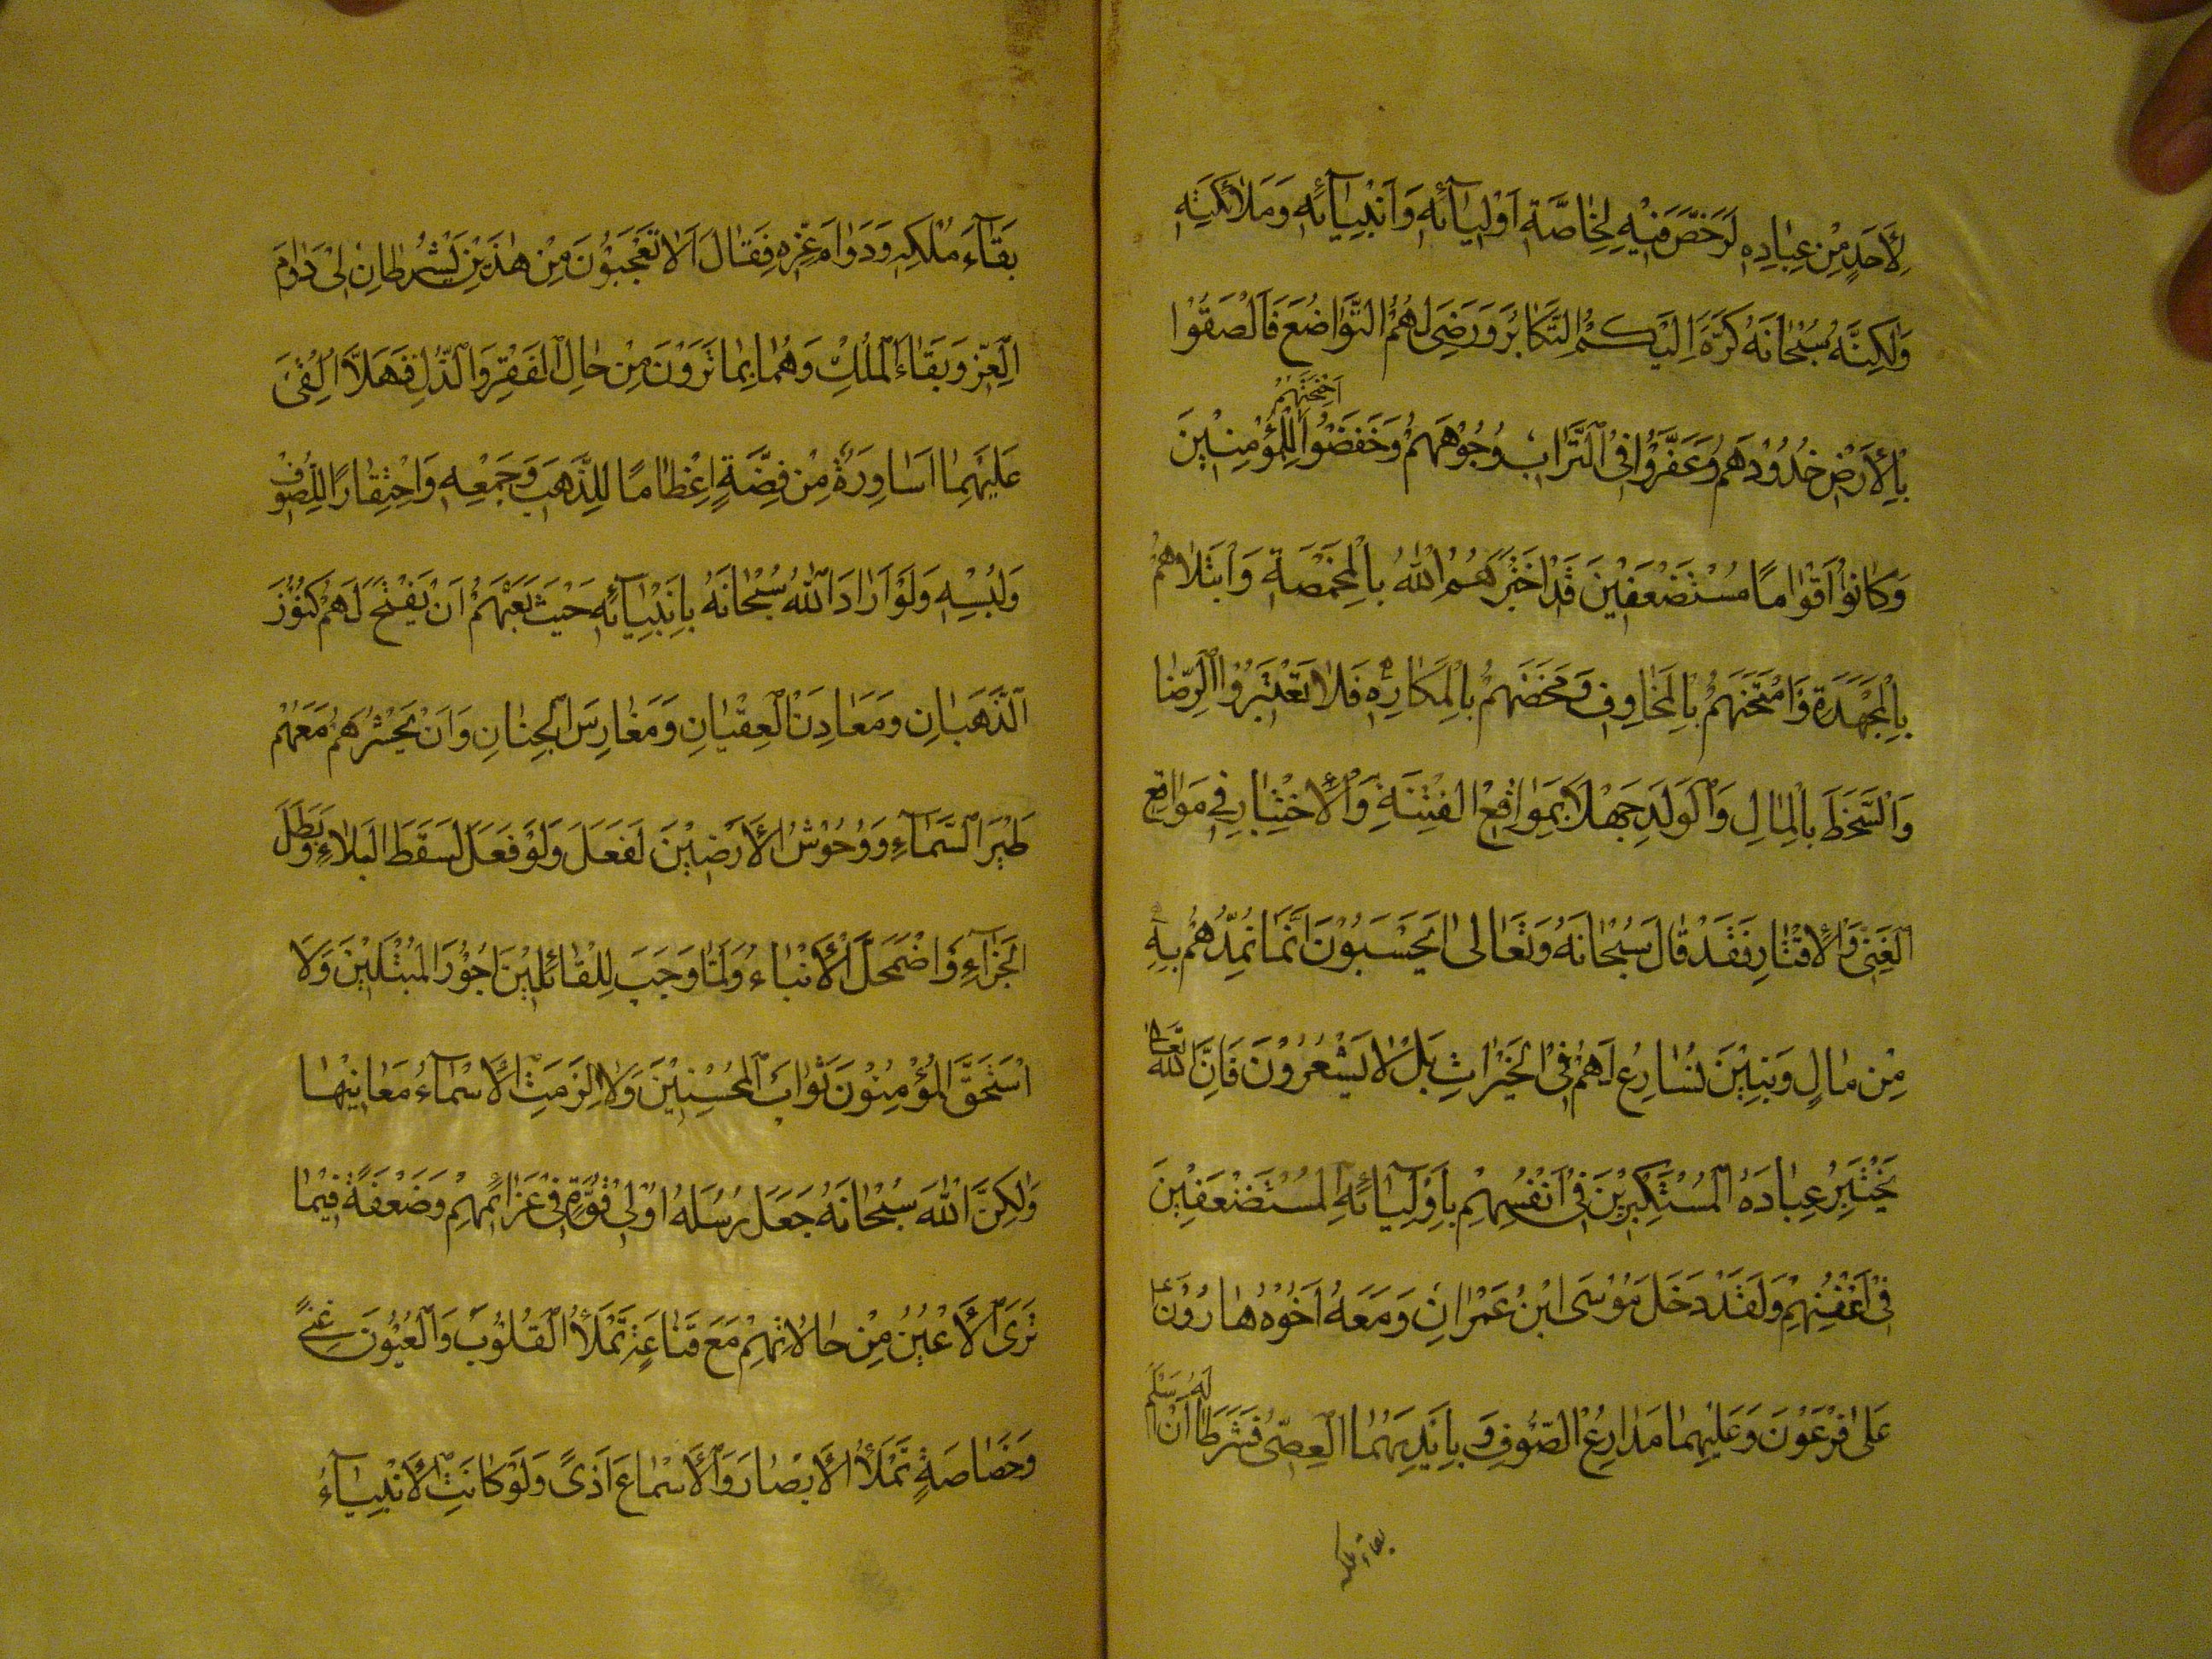 لِأَحَدٍ مِنْ عِبَادِهِ لَرَخَّصَ فِيْهِ لِخَاصَّةِ اَوْلِيَآئِهِ وَاَنْبِيَآئِهِ وَمَلَائِكَتِهِ
وَلٰكِنَّهُ سُبْحَانَهُ كَرَّهَ اِلَيْكُمْ التَّكَابُرَ وَرَضِيَ لَهُمُ التَّوَاضُعَ فَاَلْصَقُوْا
بِالْأَرْضِ خُدُوْدَهُمْ وَعَفَّرُوْا فِي التُّرَابِ وُجُوْهَهُمْ وَخَفَضُوْا اَجْنِحَتَهُمْ لِلْمُؤْمِنِيْنَ
وَكَانُوْا اَقْوَامًا مُسْتَضْعَفِيْنَ قَدْ اخْتَبَرَهُمُ اللّٰهُ بِالْمَخْمَصَةِ وَابْتَلَاهُمْ
بِالْمَجْهَدَةِ وَامْتَحَنَهُمْ بِالْمَخَاوِفِ وَمَخَضَهُمْ بِالْمَكَارِهِ فَلَا تَعْتَبِرُوا الرِّضَا
وَالسَّخَطَ بِالْمَالِ وَالْوَلَدِ جَهْلًا بِمَوَاقِعِ الْفِتْنَةِ وَالْاِخْتِبَارِ فِي مَوَاقِعِ
الْغِنَى وَالْاِقْتَارِ فَقَدْ قَالَ سُبْحَانَهُ وَتَعَالٰى اَيَحْسَبُوْنَ اَنَّمَا نُمِدُّهُمْ بِهِ
مِنْ مَالٍ وَبَنِيْنَ نُسَارِعُ لَهُمْ فِي الْخَيْرَاتِ بَلْ لَا يَشْعُرُوْنَ فَاِنَّ اللّٰهَ تَعَالٰى
يَخْتَبِرُ عِبَادَهُ الْمُسْتَكْبِرِيْنَ فِي اَنْفُسِهِمْ بِاَوْلِيَآئِهِ الْمُسْتَضْعَفِيْنَ
فِي اَعْيُنِهِمْ وَلَقَدْ دَخَلَ مُوْسَى ابْنُ عِمْرَانَ وَمَعَهُ اَخُوْهُ هَارُوْنُ
عَلٰى فِرْعَوْنَ وَعَلَيْهِمَا مَدَارِعُ الصُّوْفِ وَبِاَيْدِيْهِمَا الْعِصِيُّ فَشَرَطَا لَهُ اِنْ اَسْلَمَ
بقاء ملكه
بَقَآءَ مُلْكِهِ وَدَوَامَ عِزِّهِ فَقَالَ اَلَا تَعْجَبُوْنَ مِنْ هٰذَيْنِ يَشْرُطَانِ لِيْ دَوَامَ
الْعِزِّ وَبَقَاءَ الْمُلْكِ وَهُمَا بِمَا تَرَوْنَ مِنْ حَالِ الْفَقْرِ وَالذُّلِّ فَهَلَّا اُلْقِيَ
عَلَيْهِمَا اَسَاوِرَةٌ مِنْ فِضَّةٍ اِعْظَامًا لِلذَّهَبِ وَجَمْعِهِ وَاحْتِقَارًا لِلصُّوْفِ
وَلُبْسِهِ وَلَوْ اَرَادَ اللّٰهُ سُبْحَانَهُ بِاَنْبِيَآئِهِ حَيْثُ بَعَثَهُمْ اَنْ يَفْتَحَ لَهُمْ كُنُوْزَ
الذَّهْبَانِ وَمَعَادِنَ الْعِقْيَانِ وَمَغَارِسَ الْجِنَانِ وَاَنْ يَحْشُرَهُمْ مَعَهُمْ
طَيْرَ السَّمَآءِ وَوُحُوْشَ الْأَرَضِيْنَ لَفَعَلَ وَلَوْ فَعَلَ لَسَقَطَ الْبَلَاءُ وَبَطَلَ
الْجَزَآءُ وَاضْمَحَلَّ الْأَنْبَاءُ وَلَمَا وَجَبَ لِلْقَائِلِيْنَ اُجُوْرَ الْمُبْتَلَيْنَ وَلَا
اسْتَحَقَّ الْمُؤْمِنُوْنَ ثَوَابَ الْمُحْسِنِيْنَ وَلَا لَزِمَتِ الْأَسْمَاءُ مَعَانِيْهَا
وَلٰكِنَّ اللّٰهَ سُبْحَانَهُ جَعَلَ رُسُلَهُ اُوْلِي قُوَّةٍ فِي عَزَائِمِهِمْ وَضَعَفَةً فِيْمَا
تَرَى الْأَعْيُنُ مِنْ حَالَاتِهِمْ مَعَ قَنَاعَةٍ تَمْلَأُ الْقُلُوْبَ وَالْعُيُوْنَ غِنًى
وَخَصَاصَةٍ تَمْلَأُ الْأَبْصَارَ وَالْأَسْمَاعَ اَذًى وَلَوْ كَانَتِ الْأَنْبِيَآءُ